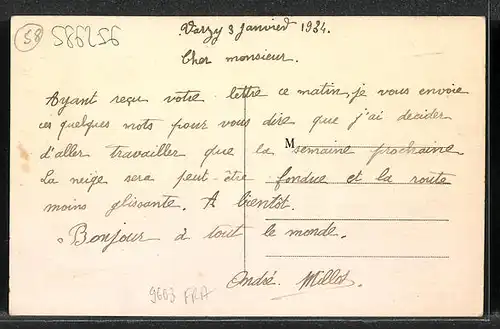 58
586256
Varzy 3 janvier 1934.
Cher monsieur.
Ayant reçu votre lettre ce matin, je vous envoie
ces quelques mots pour vous dire que j'ai decider
d'aller travailler que la semaine prochaine
M
La neige sera peut-être fondue et la route
moins glissante. A bientôt.
Bonjour à tout le monde.
André Millot
9603 FRA